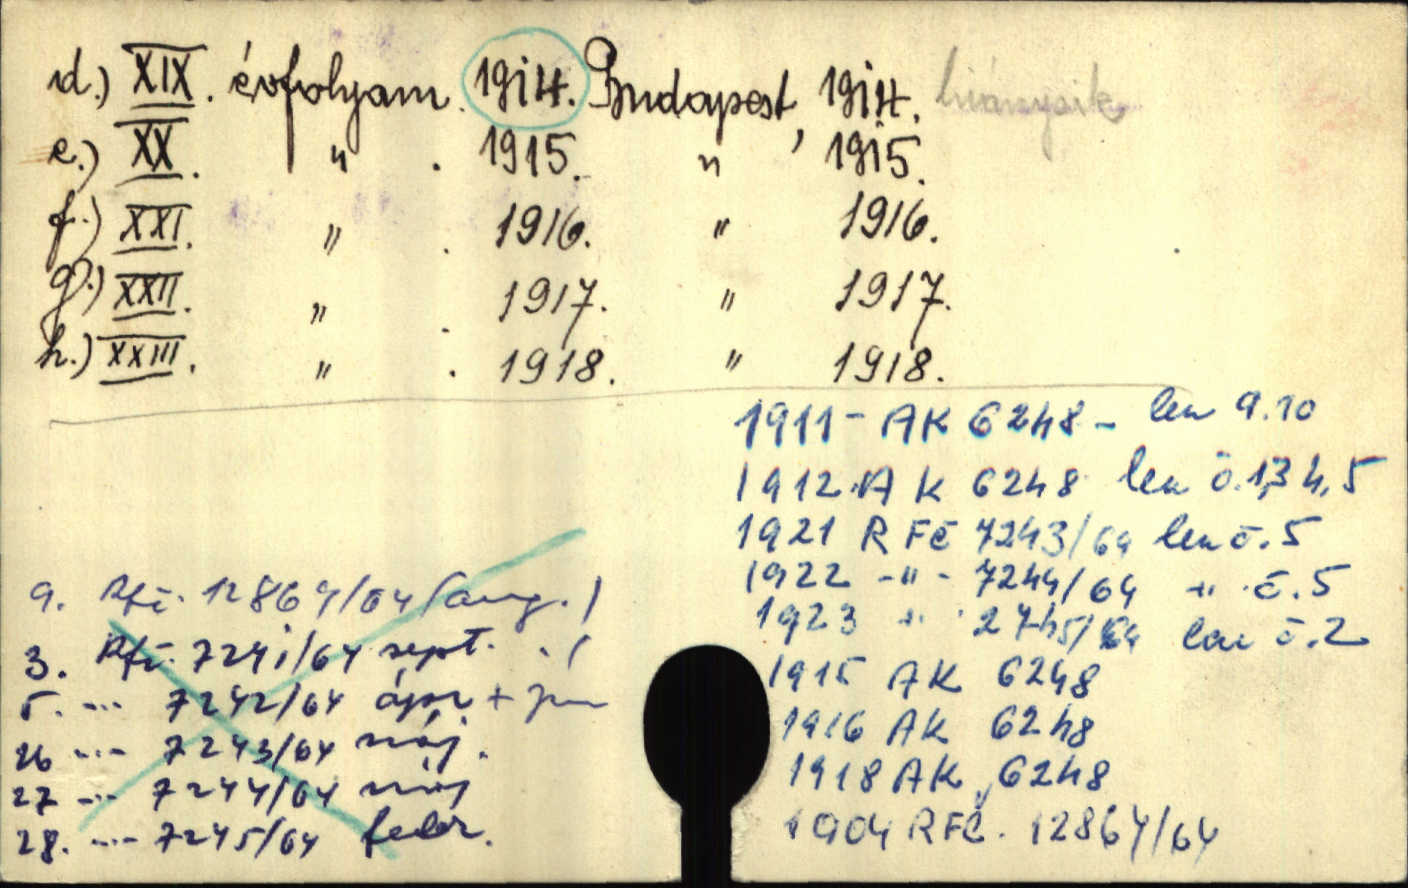 d.) XIX. évfolyam. 1914. Budapest, 1914. hiányzik
e.) XX. " . 1915. " 1915.
f.) XXI. " . 1916. " 1916.
g.) XXII. " . 1917. " 1917.
h.) XXIII. " . 1918. " 1918.
1911 - AK 6248 - len 9.10
1912 AK 6248 len č. 1,3 4,5
1921 RFČ 7243/64 len č. 5
1922 -"- 7244/64 " č. 5
1923 " 2745/64 len č. 2
1915 AK 6248
1916 AK 6248
1918 AK 6248
1904 RFČ. 12864/64
9. Rfč. 12864/64 (aug.)
3. Rfč. 7241/64 sept.
5. -"- 7242/64 ápr + jun
26 -"- 7243/64 máj.
27 -"- 7244/64 máj
28. -"- 7245/64 febr.